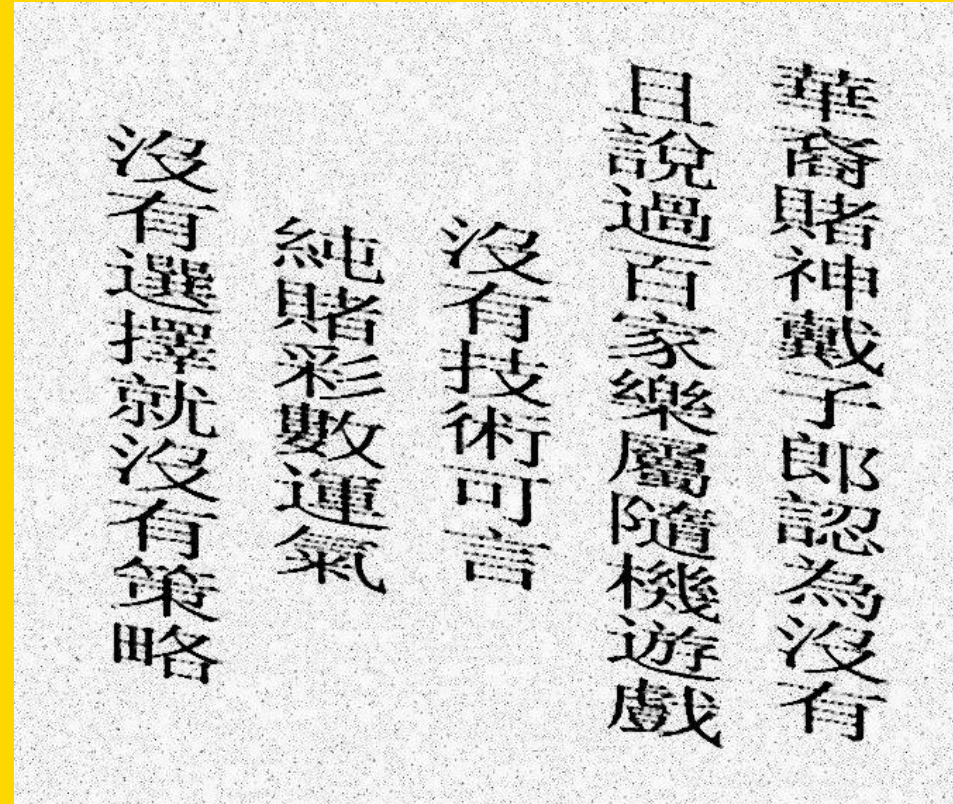 華裔賭神戴子郎認為沒有
且說過百家樂屬隨機遊戲
沒有技術可言
純賭彩數運氣
沒有選擇就沒有策略